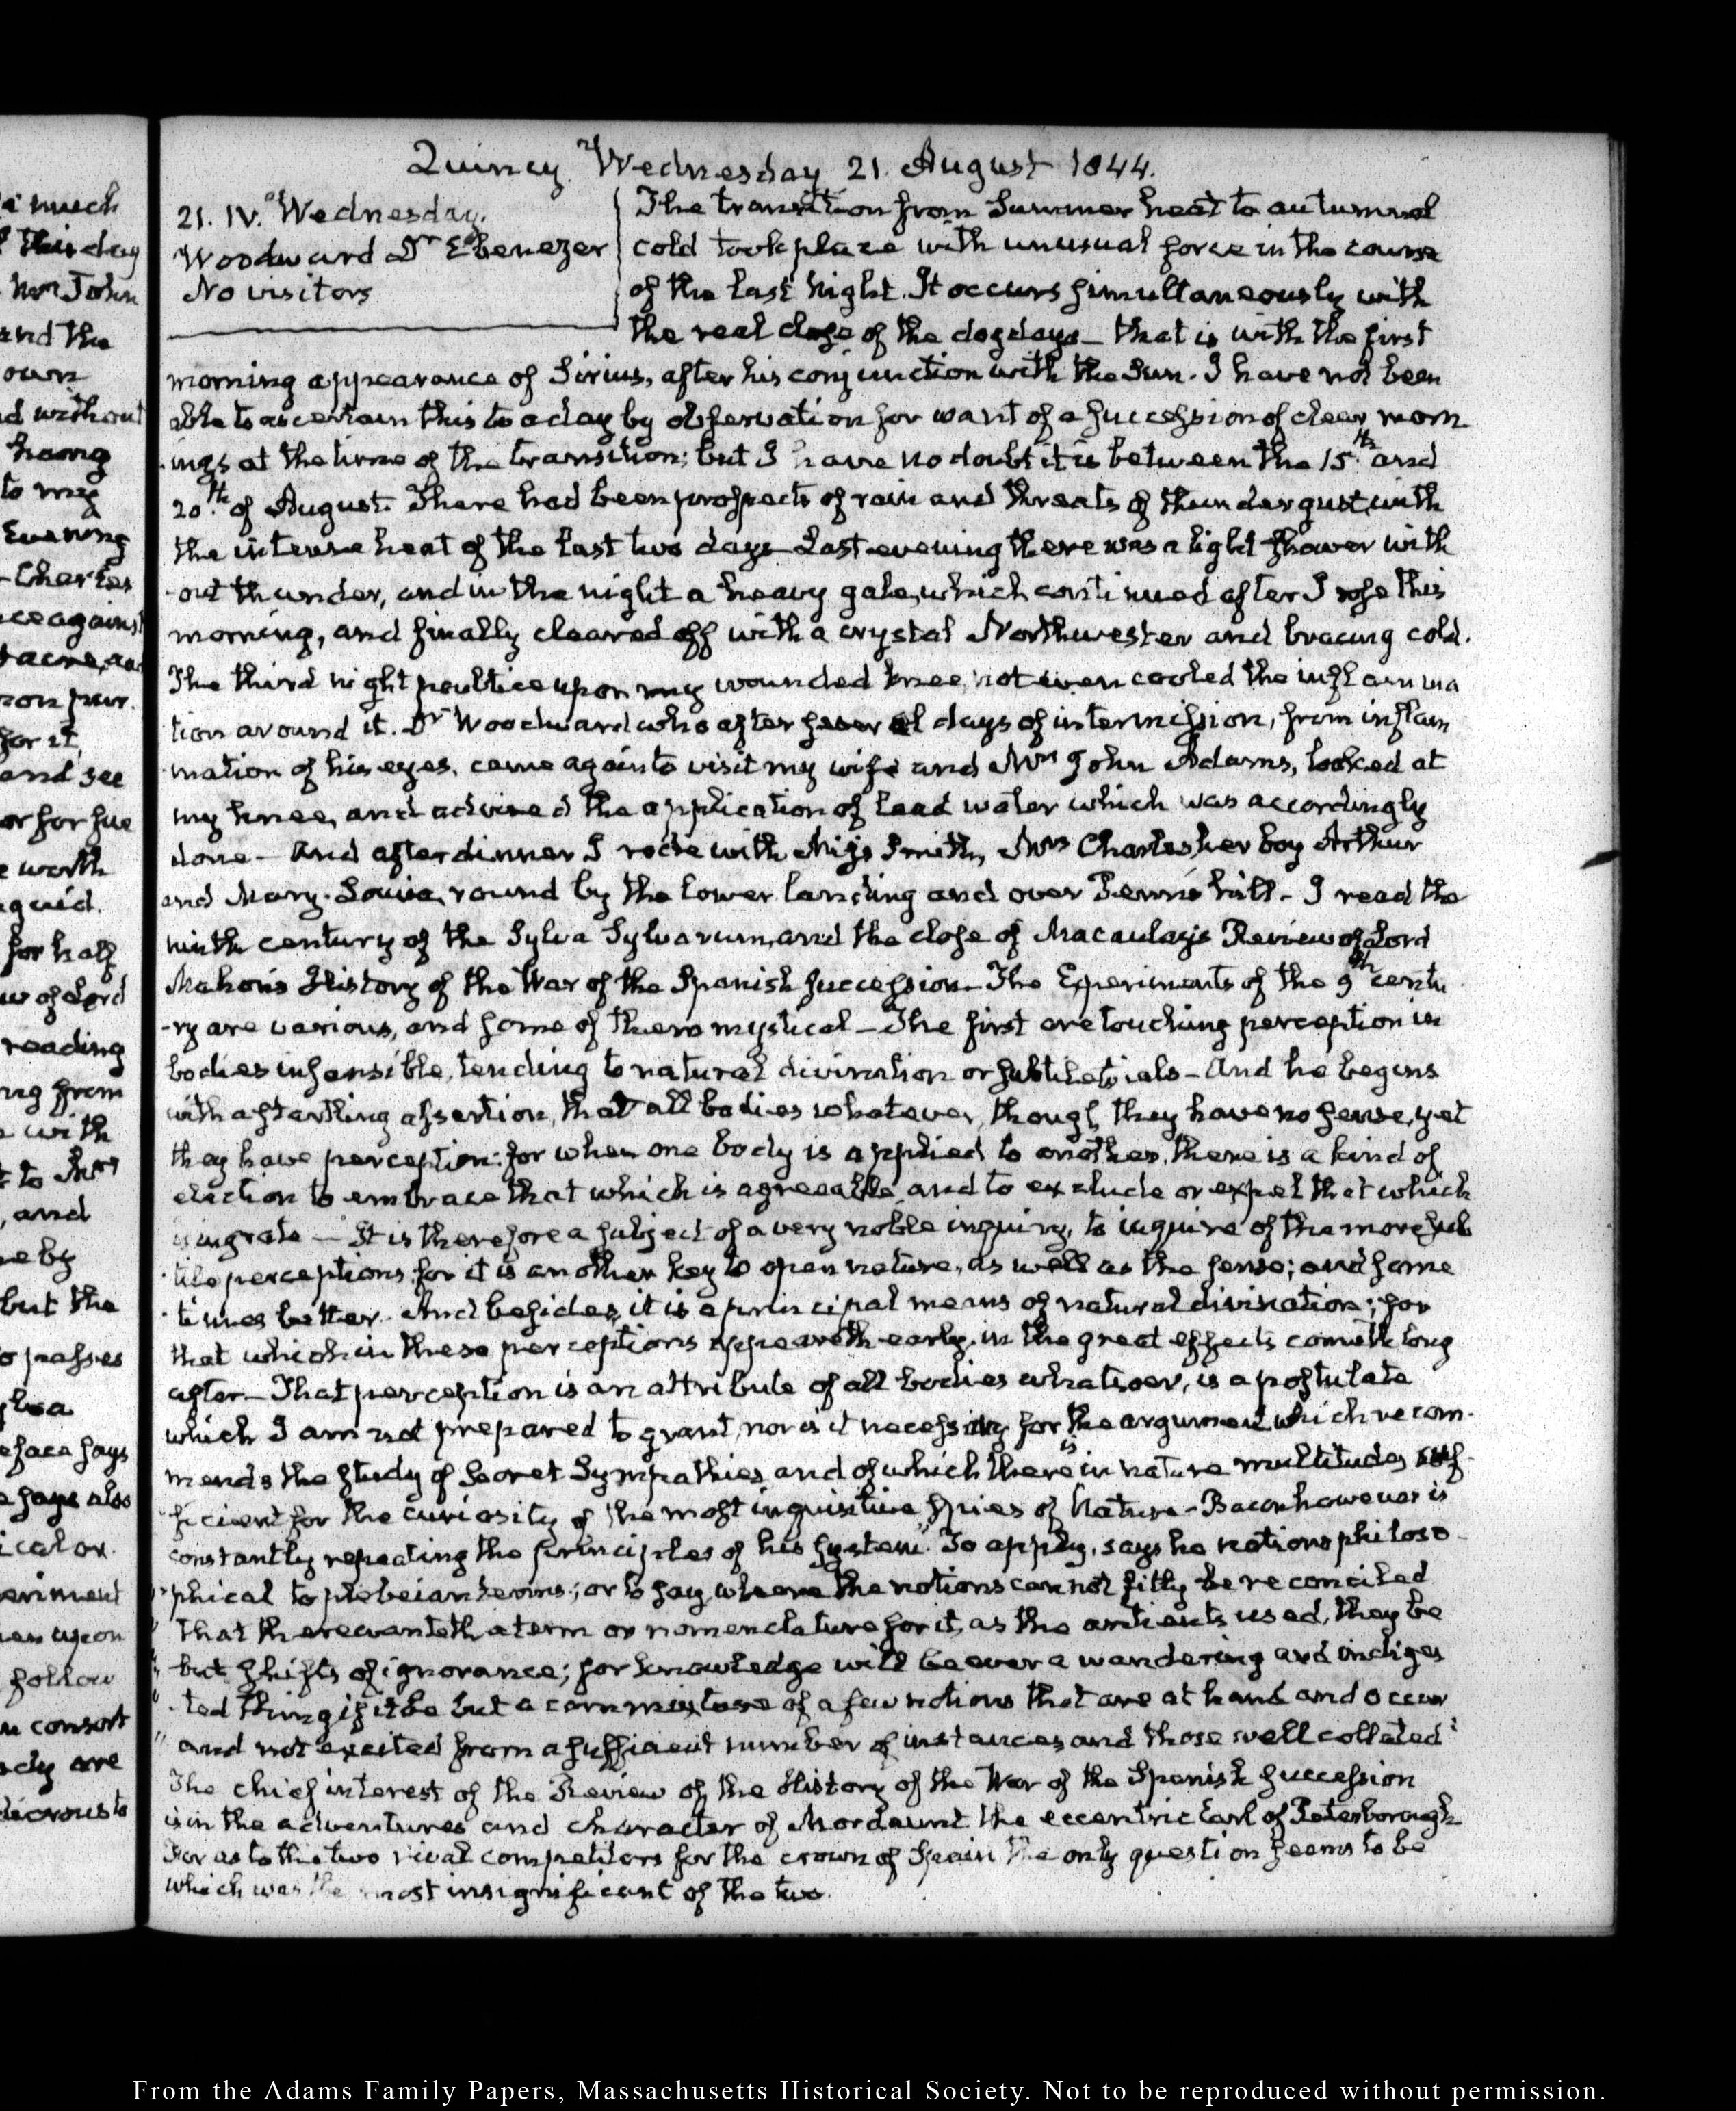 Quincy Wednesday 21. August 1844.
21. IV. Wednesday.
Woodward Dr Ebenezer
No visitors
The transition from Summer heat to autumnal
cold took place with unusual force in the course
of the last night. It occurs simultaneously with
the real close of the dogdays— that is with the first
morning appearance of Sirius, after his conjunction with the Sun. I have not been
able to ascertain this to a day by observation for want of a succession of clear morn
ings at the time of the transition; but I have no doubt it is between the 15th and
20th of August. There had been prospects of rain and threats of thundergust, with
the intense heat of the last two days— Last evening there was a light shower with
-out thunder, and in the night a heavy gale, which continued after I rose this
morning, and finally cleared off with a crystal Northwester and bracing cold.
The third night poultice upon my wounded knee, not even cooled the inflamma
tion around it. Dr Woodward who after several days of intermission, from inflam
mation of his eyes, came again to visit my wife and Mrs John Adams, looked at
my knee, and advised the application of lead water which was accordingly
done— And after dinner I rode with Miss Smith, Mrs Charles her boy Arthur
and Mary-Louisa, round by the lower landing and over Penn's hill— I read the
ninth century of the Sylva Sylvarum, and the close of Macaulay's Review of Lord
Mahon's History of the War of the Spanish Succession— The Experiments of the 9th centu
-ry are various, and some of them mystical— The first are touching perception in
bodies insensible, tending to natural divination or subtile trials— And he begins
with a startling assertion, that all bodies whatever, though they have no sense, yet
they have perception: for when one body is applied to another, there is a kind of
election to embrace that which is agreeable, and to exclude or expel that which
is ingrate— It is therefore a subject of a very noble inquiry, to inquire of the more sub
tile perceptions; for it is another key to open nature, as well as the sense; and some
times better. And besides, it is a principal means of natural divination; for
that which in these perceptions appeareth early, in the great effects cometh long
after— That perception is an attribute of all bodies whatsoever, is a postulate
which I am not prepared to grant, nor is it necessary for the argument which recom-
mends the study of Secret Sympathies, and of which there is in nature multitudes suf-
ficient for the curiosity of the most inquisitive spies of Nature— Bacon however is
constantly repeating the principles of his system. "To apply, says he notions philoso-
"phical to plebeian terms; or to say, where the notions cannot fitly be reconciled
"that there wanteth a term or nomenclature for it, as the antients used, they be
"but shifts of ignorance; for knowledge will be ever a wandering and indiges
"ted thing if it be but a commixture of a few notions that are at hand and occur
"and not excited from a sufficient number of instances and those well collated"
The chief interest of the Review of the History of the War of the Spanish Succession
is in the adventures and character of Mordaunt the eccentric Earl of Peterborough
For as to the two rival competitors for the crown of Spain the only question seems to be
which was the most insignificant of the two.
From the Adams Family Papers, Massachusetts Historical Society. Not to be reproduced without permission.